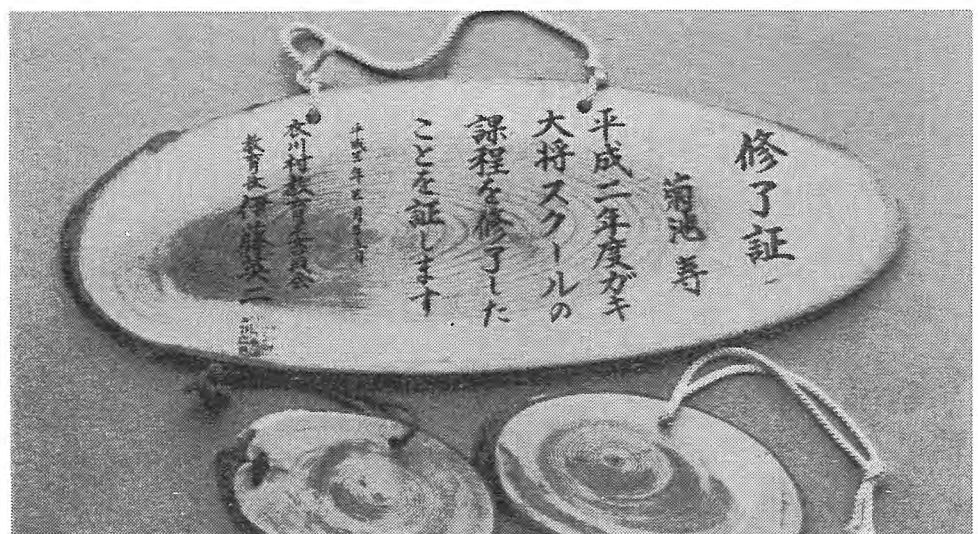 修了証
菊池寿
平成二年度ガキ
大将スクールの
課程を修了した
ことを証します
平成三年三月
衣川村教育委員会
教育長 伊藤英二